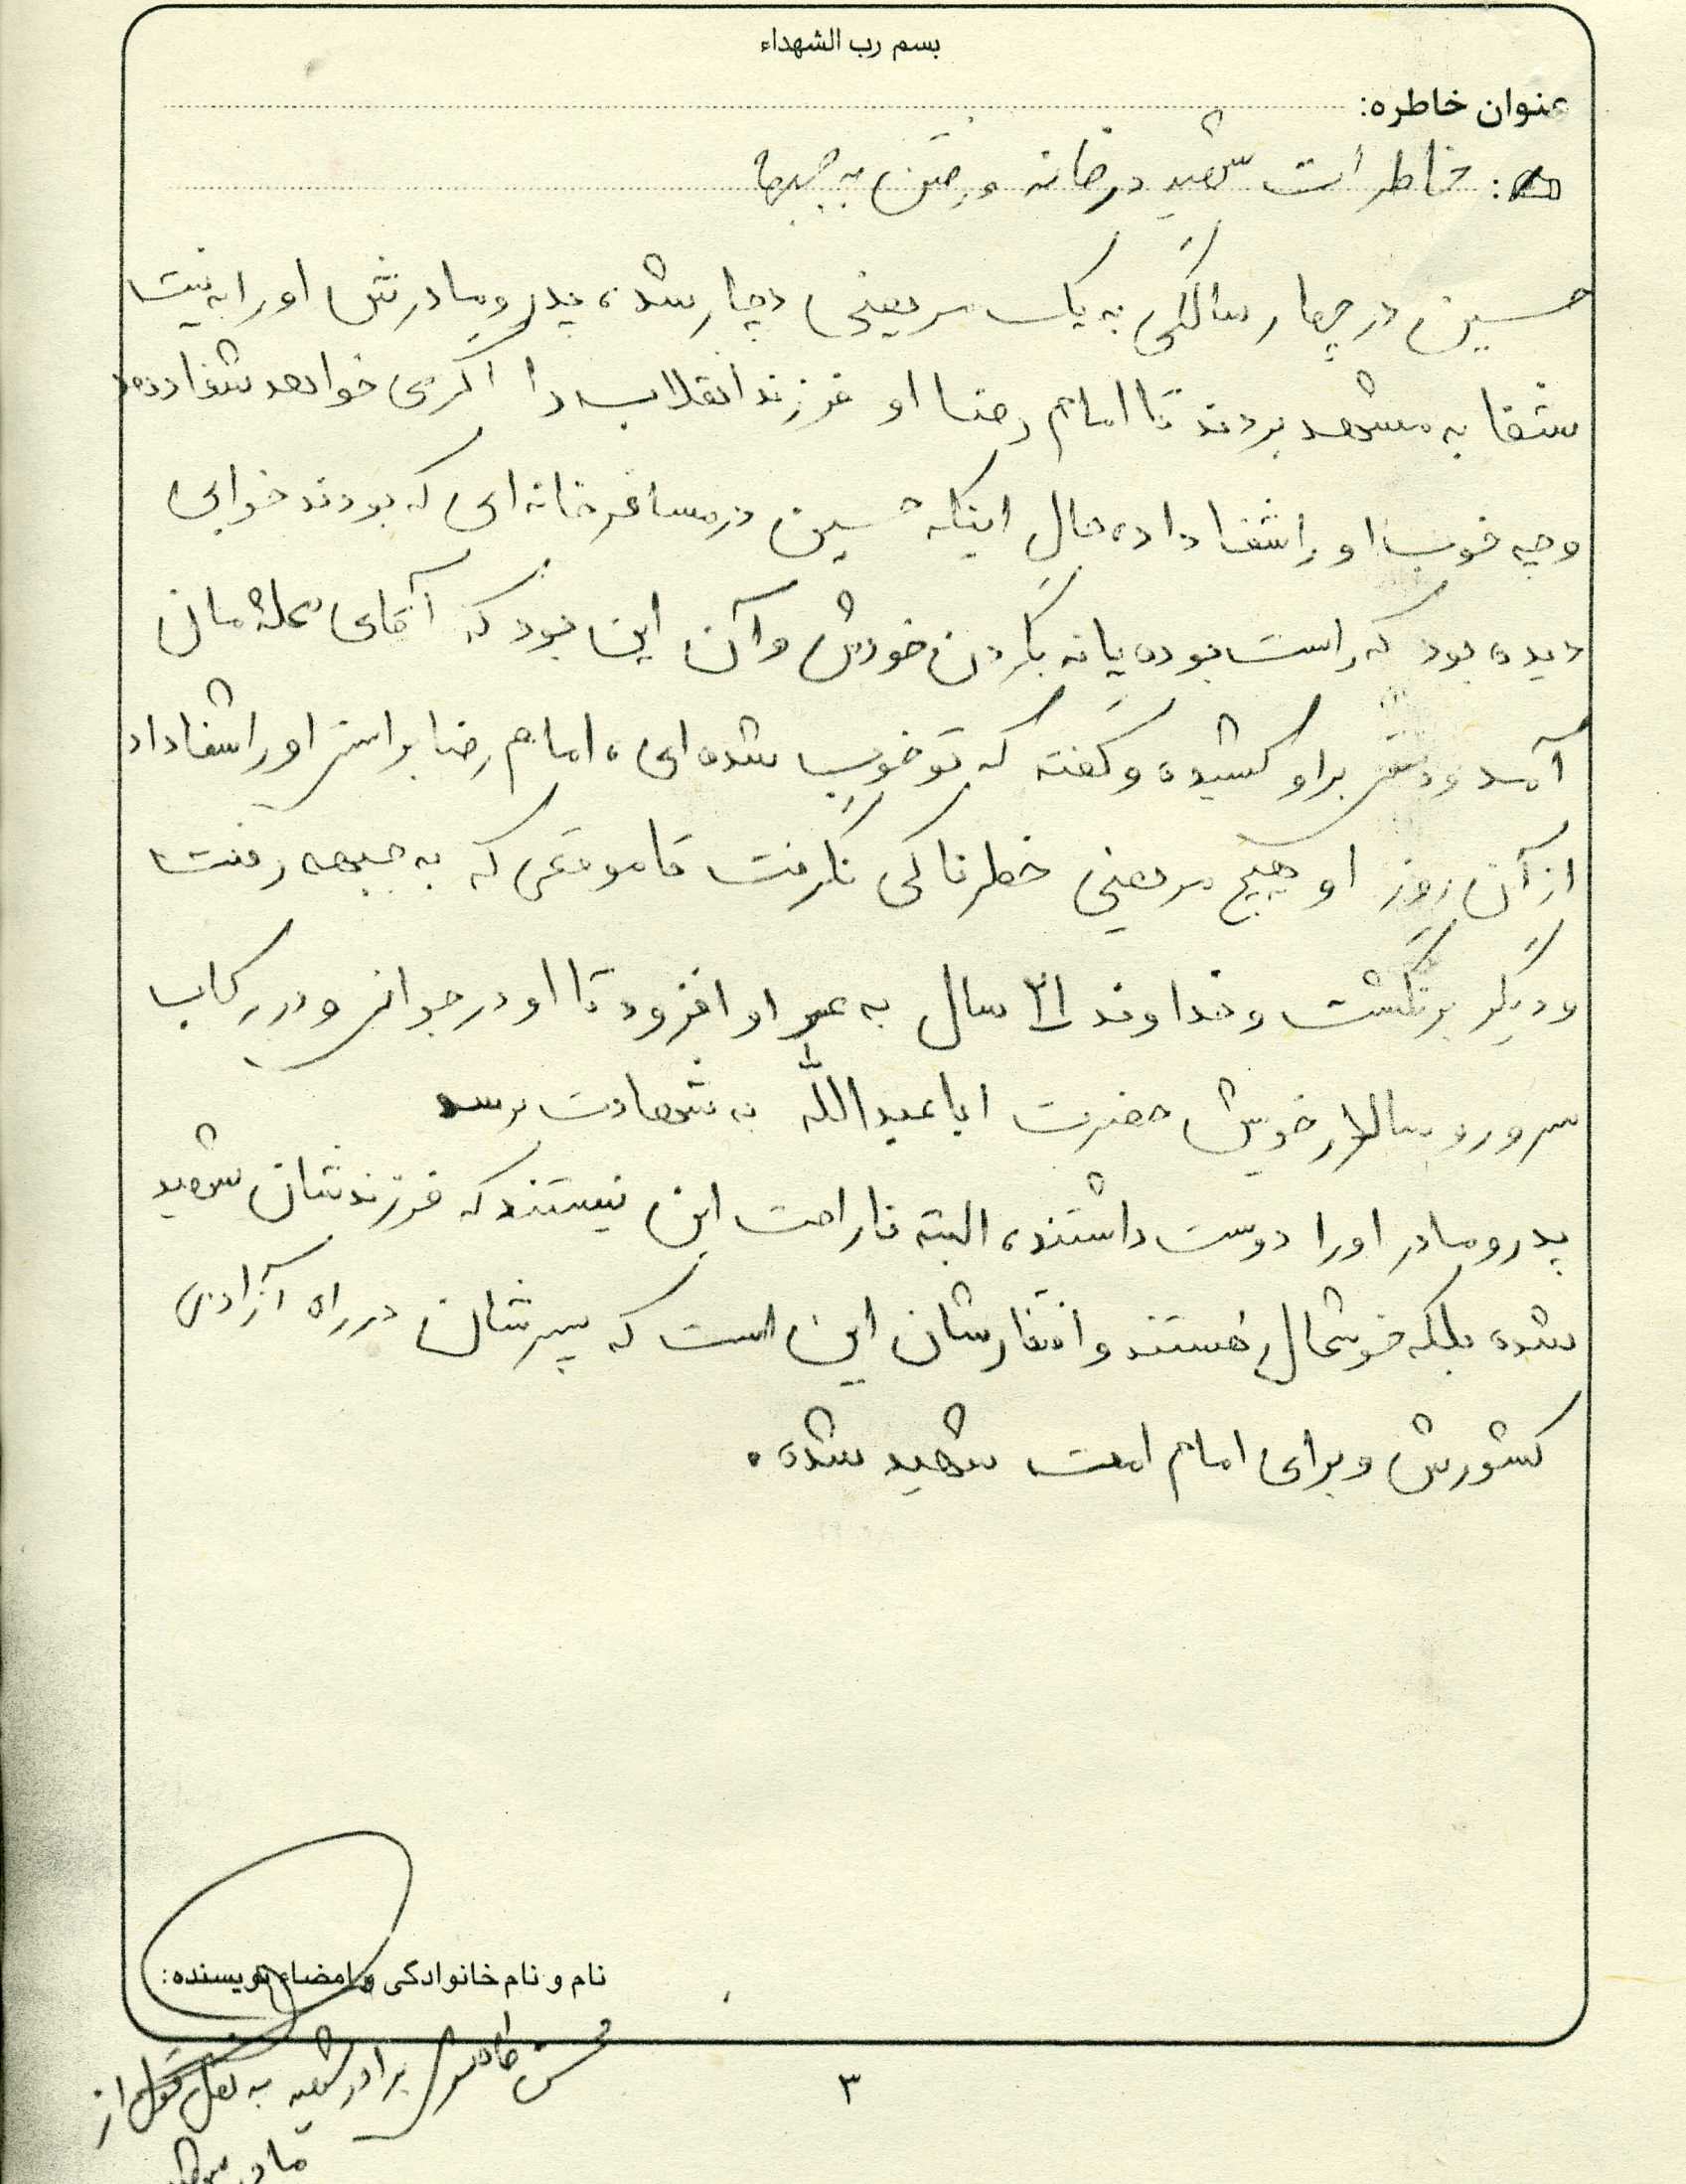 بسم رب الشهداء
عنوان خاطره:
: خاطرات شهید در خانه و رفتن به جبهه‌ها
حسین در چهار سالگی به یک مریضی دچار شد، پدر و مادرش او را به نیت
شفا به مشهد بردند تا امام رضا او فرزند انقلاب را اگر می خواهد شفا دهد
و چه خوب او را شفا داد، حال اینکه حسین در مسافرخانه ای که بودند خوابی
دیده بود که راست بوده یا نه بگردن خودش و آن این بود که آقای محله مان
آمد و دستی بر او کشیده و گفته که تو خوب شده ای، امام رضا براستی او را شفا داد
از آن روز او هیچ مریضی خطرناکی نگرفت تا موقعی که به جبهه رفت
و دیگر برنگشت و خداوند ۲۱ سال به عمر او افزود تا او در جوانی و در رکاب
سرور و سالار خویش حضرت اباعبدالله به شهادت برسد
پدر و مادر او را دوست داشتند، البته ناراحت این نیستند که فرزندشان شهید
شده بلکه خوشحال هستند و افتخارشان این است که پسرشان در راه آزادی
کشورش و برای امام امت شهید شده.
نام و نام خانوادگی و امضاء نویسنده:
برادر شهید به نقل قول از
مادر شهید
۳